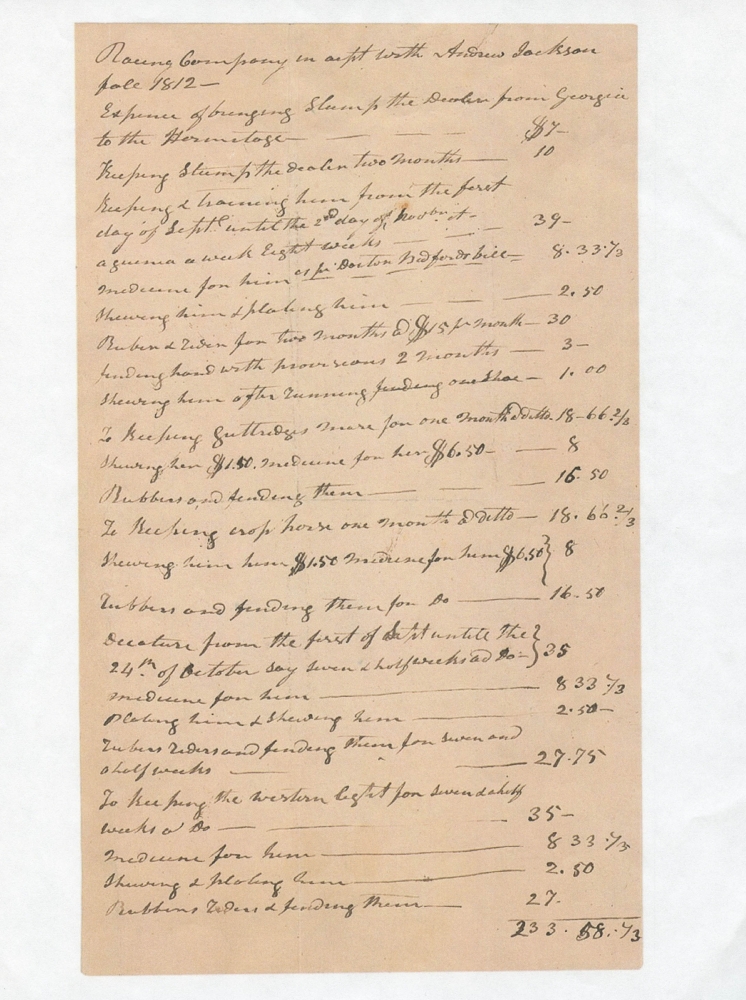 Racing Company in acpt with Andrew Jackson
fall 1812 —
Expence of bringing Stump the Dealer from Georgia
to the Hermitage — — — $7–
Keeping Stump the dealer two months — 10
Keeping & training him from the first
day of Sept. untill the 2nd day of Novbr at
a guinea a week Eight weeks — — 39–
medicine for him as pr Docton Bedfords bill — 8.33 1/3
Shewing him & plating him — — 2.50
Ruber & Rider for two months @ $15 pr month — 30
finding hand with provisions 2 months — 3–
Shewing him after running finding one Shoe — 1.00
To Keeping Guttredges mare for one month @ ditto 18–66 2/3
Shewing her $1.50. medicine for her $6.50 — 8
Rubbers and finding them — — — 16.50
To Keeping crop horse one month @ ditto — 18.66 2/3
Shewing him $1.50 medicine for him $6.50 } 8
Rubbers and finding them for Do — 16.50
Decature from the first of Sept untill the
24th of October say seven & half weeks ad Do — } 35
medicine for him — 8 33 1/3
Plating him & Shewing him — 2.50 —
Rubers Riders and finding them for seven and
a half weeks — — 27.75
To Keeping the western light for seven & half
weeks a Do — — 35–
medicine for him — 8 33 1/3
Shewing & plating him — 2.50
Rubbers Riders & finding them — 27.
233.58. 1/3